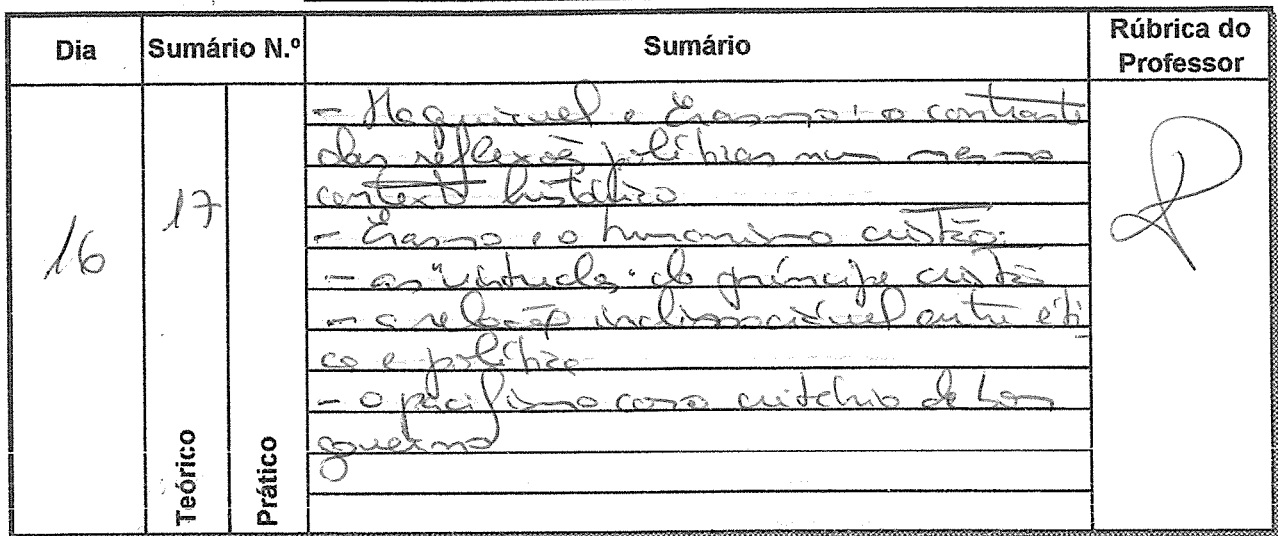 Dia Sumário N.º Sumário Rúbrica do Professor
16 17
Teórico Prático
- Maquiavel e Erasmo: o contraste
das reflexões políticas num mesmo
contexto histórico
- Erasmo e o humanismo cristão:
- as "virtudes" do príncipe cristão
- a relação indissociável entre éti
ca e política
- o pacifismo como critério de bom
governo